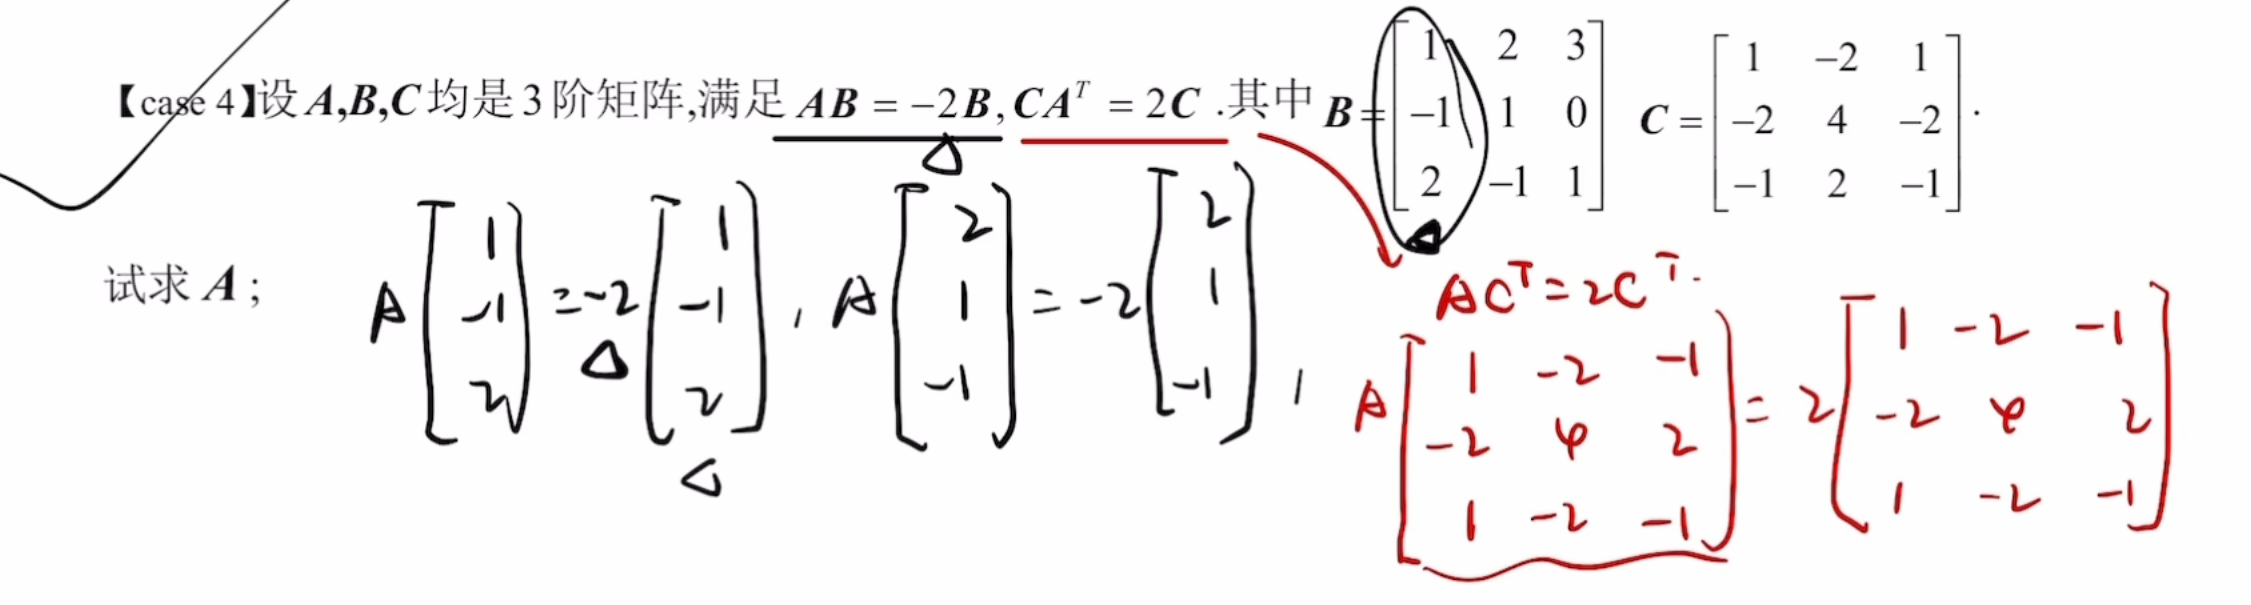 【case 4】设 A,B,C 均是 3 阶矩阵,满足 AB = −2B, CA^T = 2C .其中 B = [1 2 3; −1 1 0; 2 −1 1] C = [1 −2 1; −2 4 −2; −1 2 −1] .
试求 A ;
A [1; −1; 2] = −2 [1; −1; 2] , A [2; 1; −1] = −2 [2; 1; −1] ,
AC^T = 2C^T .
A [1 −2 −1; −2 4 2; 1 −2 −1] = 2 [1 −2 −1; −2 4 2; 1 −2 −1]